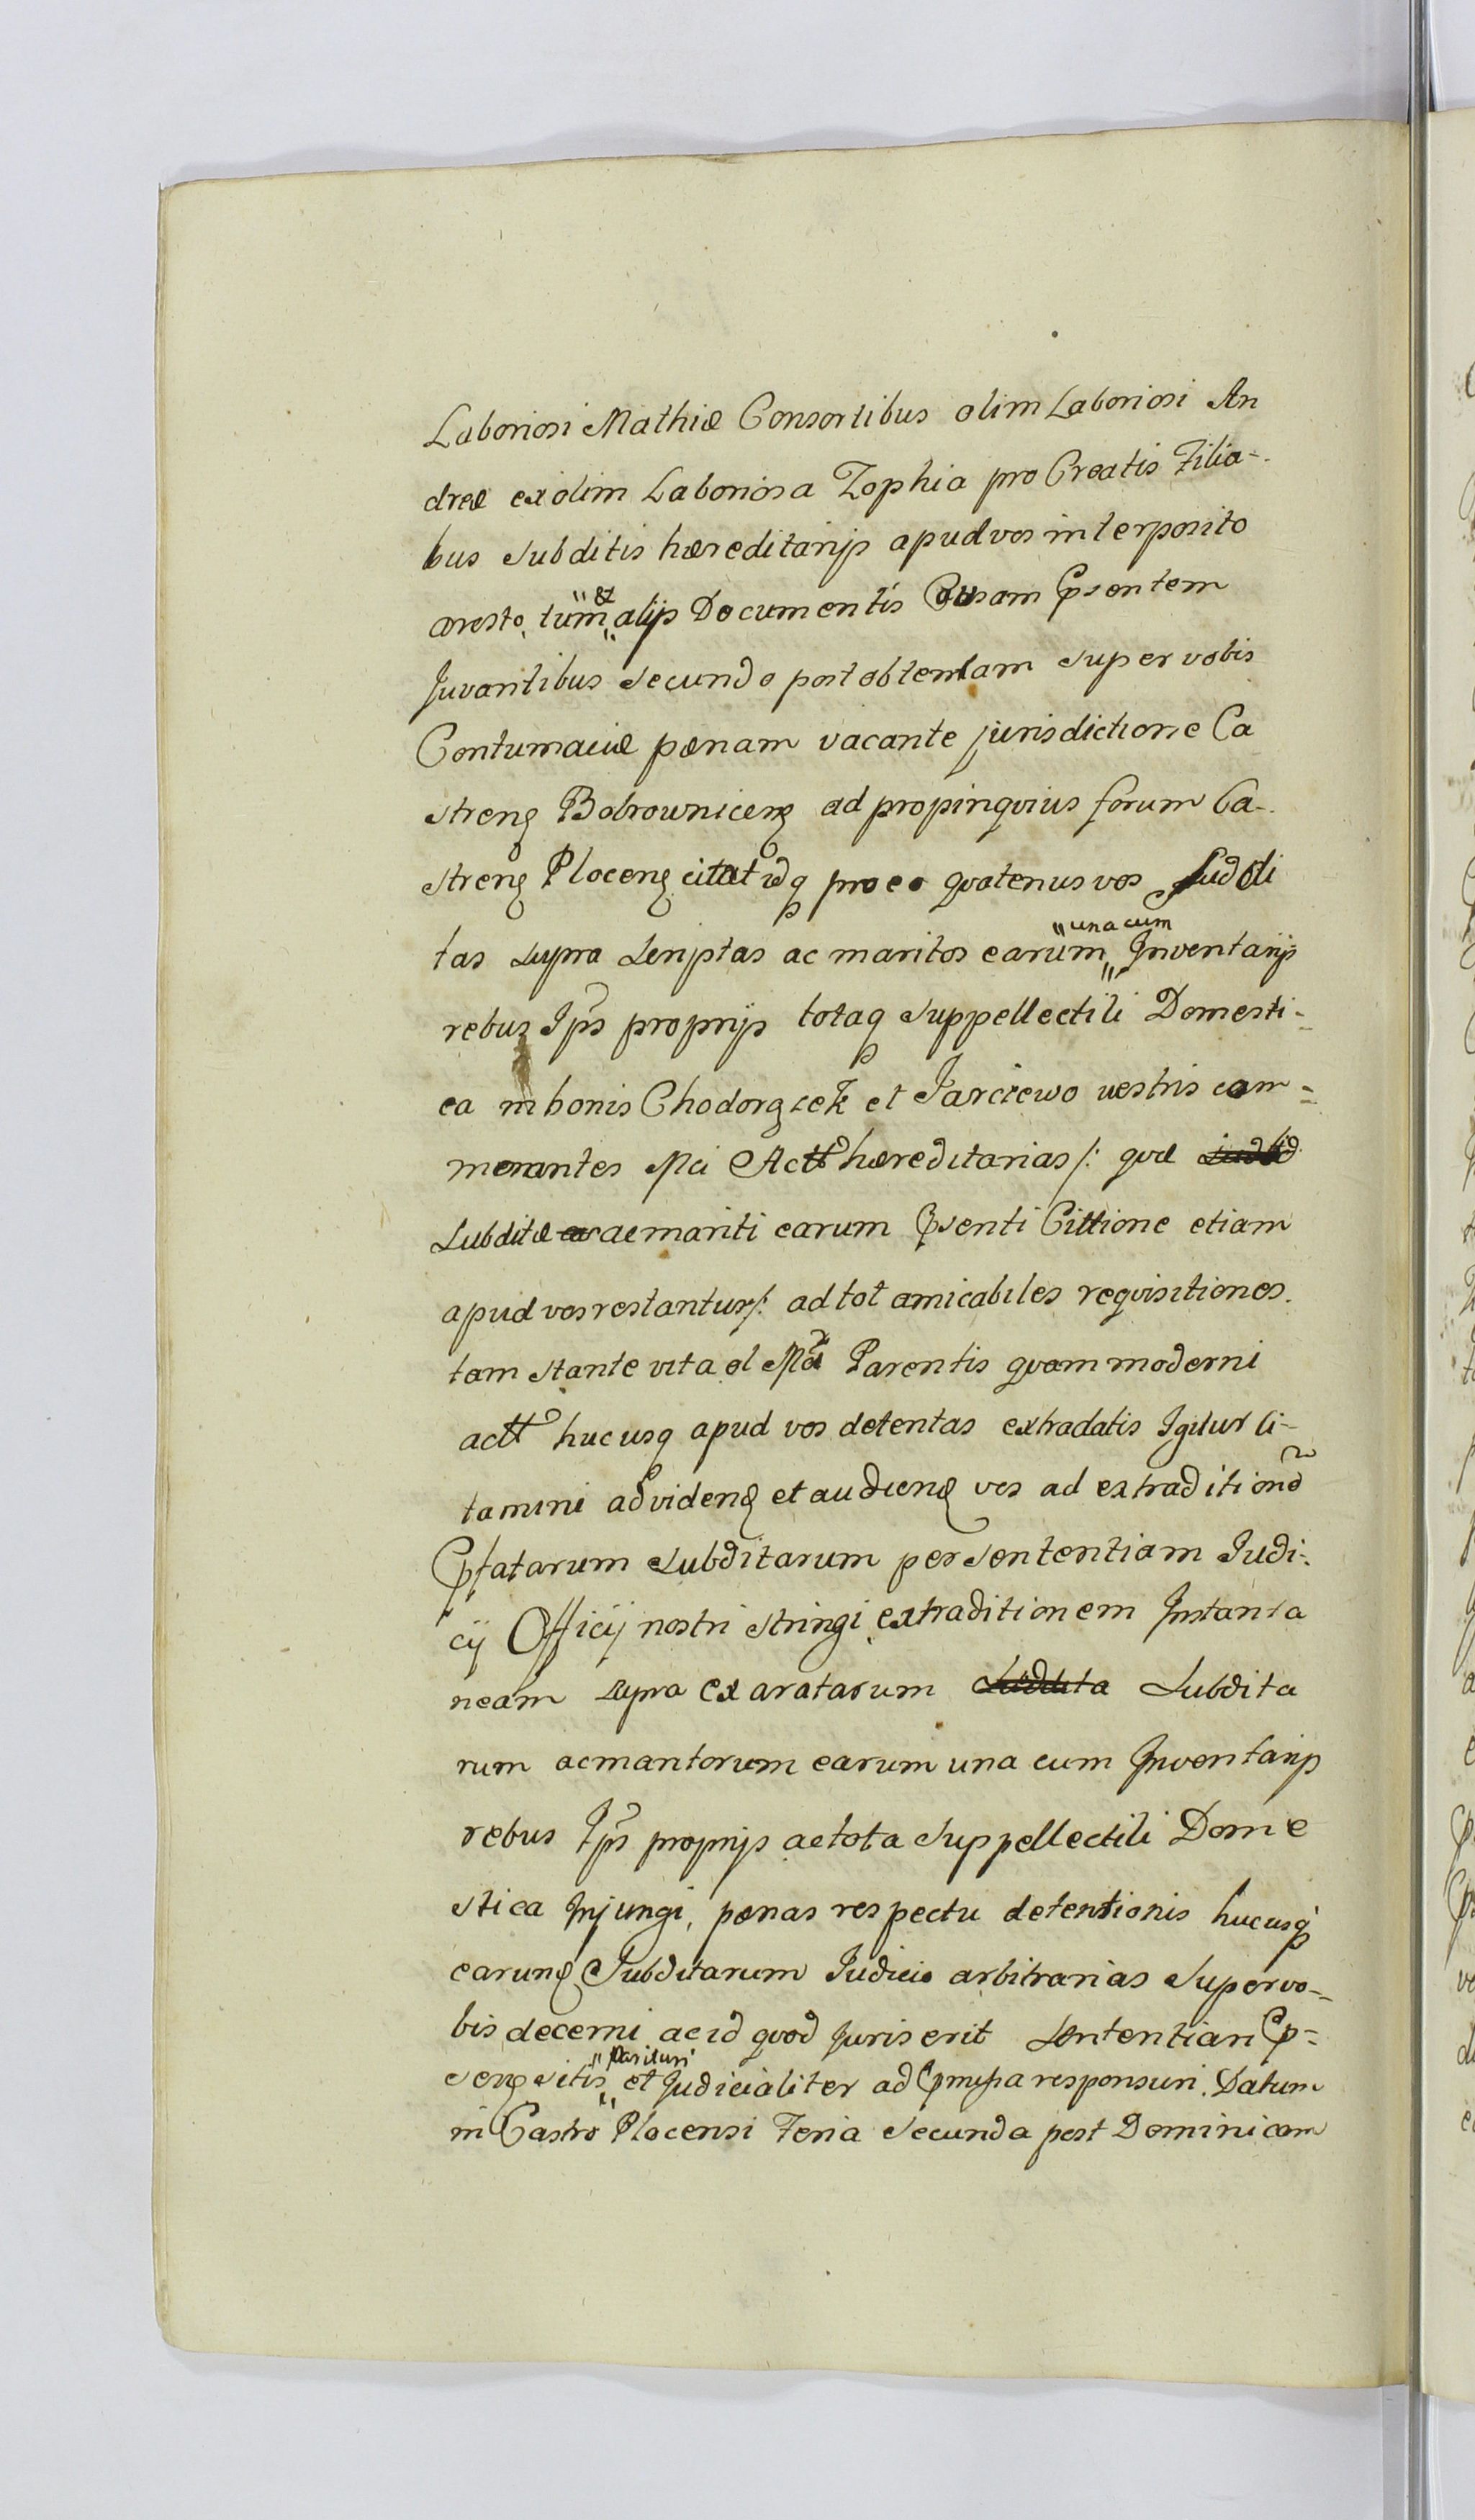 Laboriosi Mathiæ Consortibus olim Laboriosi An
dreæ ex olim Laboriosa Zophia pro Creatis Filia-
bus subditis hæreditarijs apud vos interposito
aresto, tum & alijs Documentis Causam Pn̄sentem
Juvantibus secundo post obtentam super vobis
Contumaciæ pænam vacante jurisdictione Ca
streng Bobrowniceng ad propinqvius forum Ca-
streng Ploceng citat idq pro eo qvatenus vos Subdi
tas supra scriptas ac maritos earum una cum Inventarijs
rebus Ips proprijs totaq suppellectili Domesti-
ca in bonis Chodorążek et Jarczewo vestris com-
morantes Mci Actt hæreditarias /: qvæ
Subditæ ac mariti earum Psenti Cittione etiam
apud vos restantur /: ad tot amicabiles reqvisitiones
tam stante vita ol Mci Parentis qvam moderni
actt hucusq apud vos detentas extradatis Igitur Ci-
tamini ad videnđ et audienđ vos ad extraditionē
Pfatarum subditarum per sententiam Judi-
cij Officij nostri stringi, extraditionem Instanta
neam supra ex aratarum Subdita Subdita
rum ac maritorum earum una cum Inventarijs
rebus Ips proprijs ac tota suppellectili Dome
stica Injungi, pænas respectu detentionis hucusq
earunđ Subditarum Judicio arbitrarias super vo-
bis decerni ac id qvod Juris erit Sententiari P-
seng sitis parituri et Judicialiter ad Pmissa responsuri. Datum
in Castro Plocensi Feria secunda post Dominicam